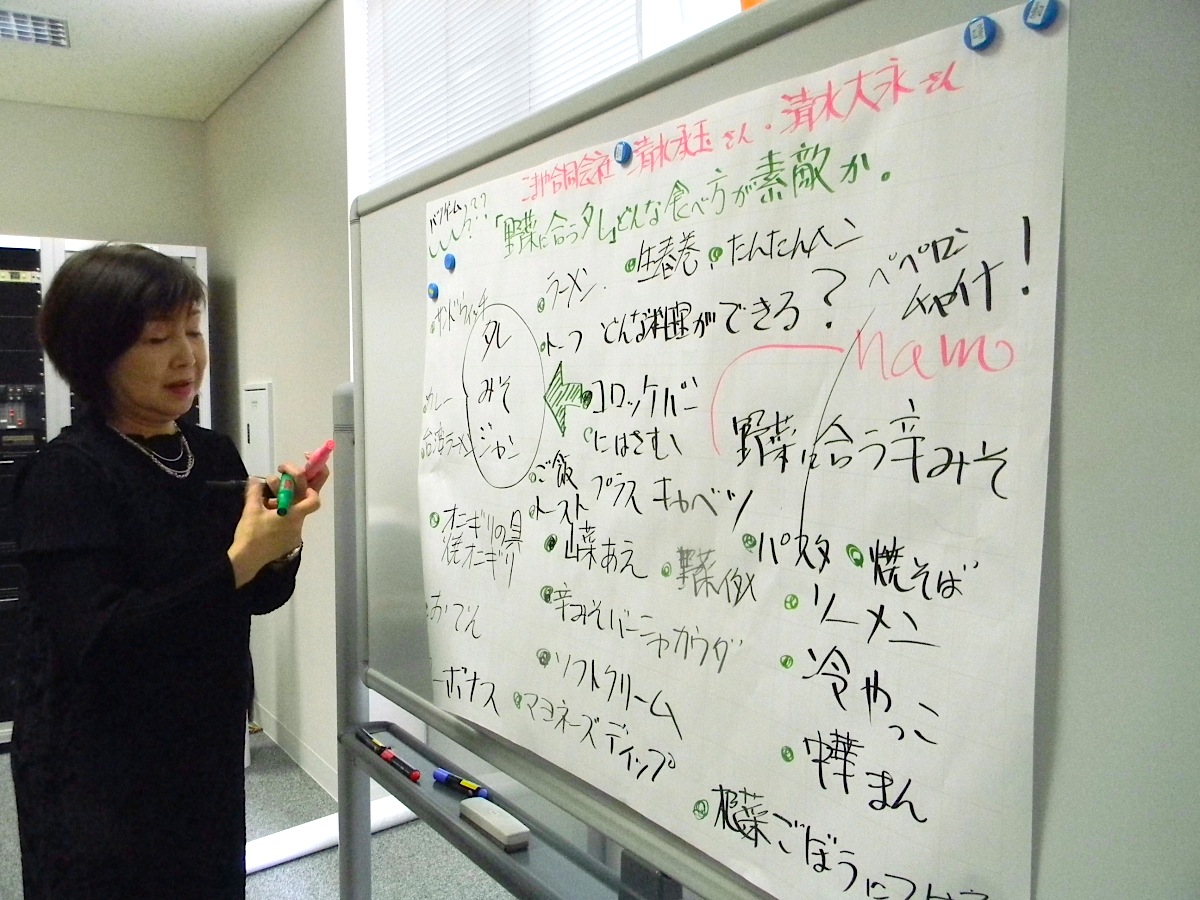 こまや合同会社 清水承玉さん・清水大永さん
バツゲームって??
「野菜に合うタレ」どんな食べ方が素敵か。
生春巻
たんたんメン
ラーメン
ペペロン
チャイナ!
サンドウィッチ
タレ
トーフ
どんな料理ができる?
namo
みそ
コロッケパン
にはさむ
カレー
台湾ラーメン
ジャン
野菜に合う辛みそ
ご飯
プラス キャベツ
トースト
オニギリの具
焼オニギリ
山菜あえ
野菜
パスタ
焼そば
おでん
辛みそバーニャカウダ
ソーメン
ソフトクリーム
冷やっこ
ーボナス
マヨネーズディップ
中華まん
根菜ごぼうに